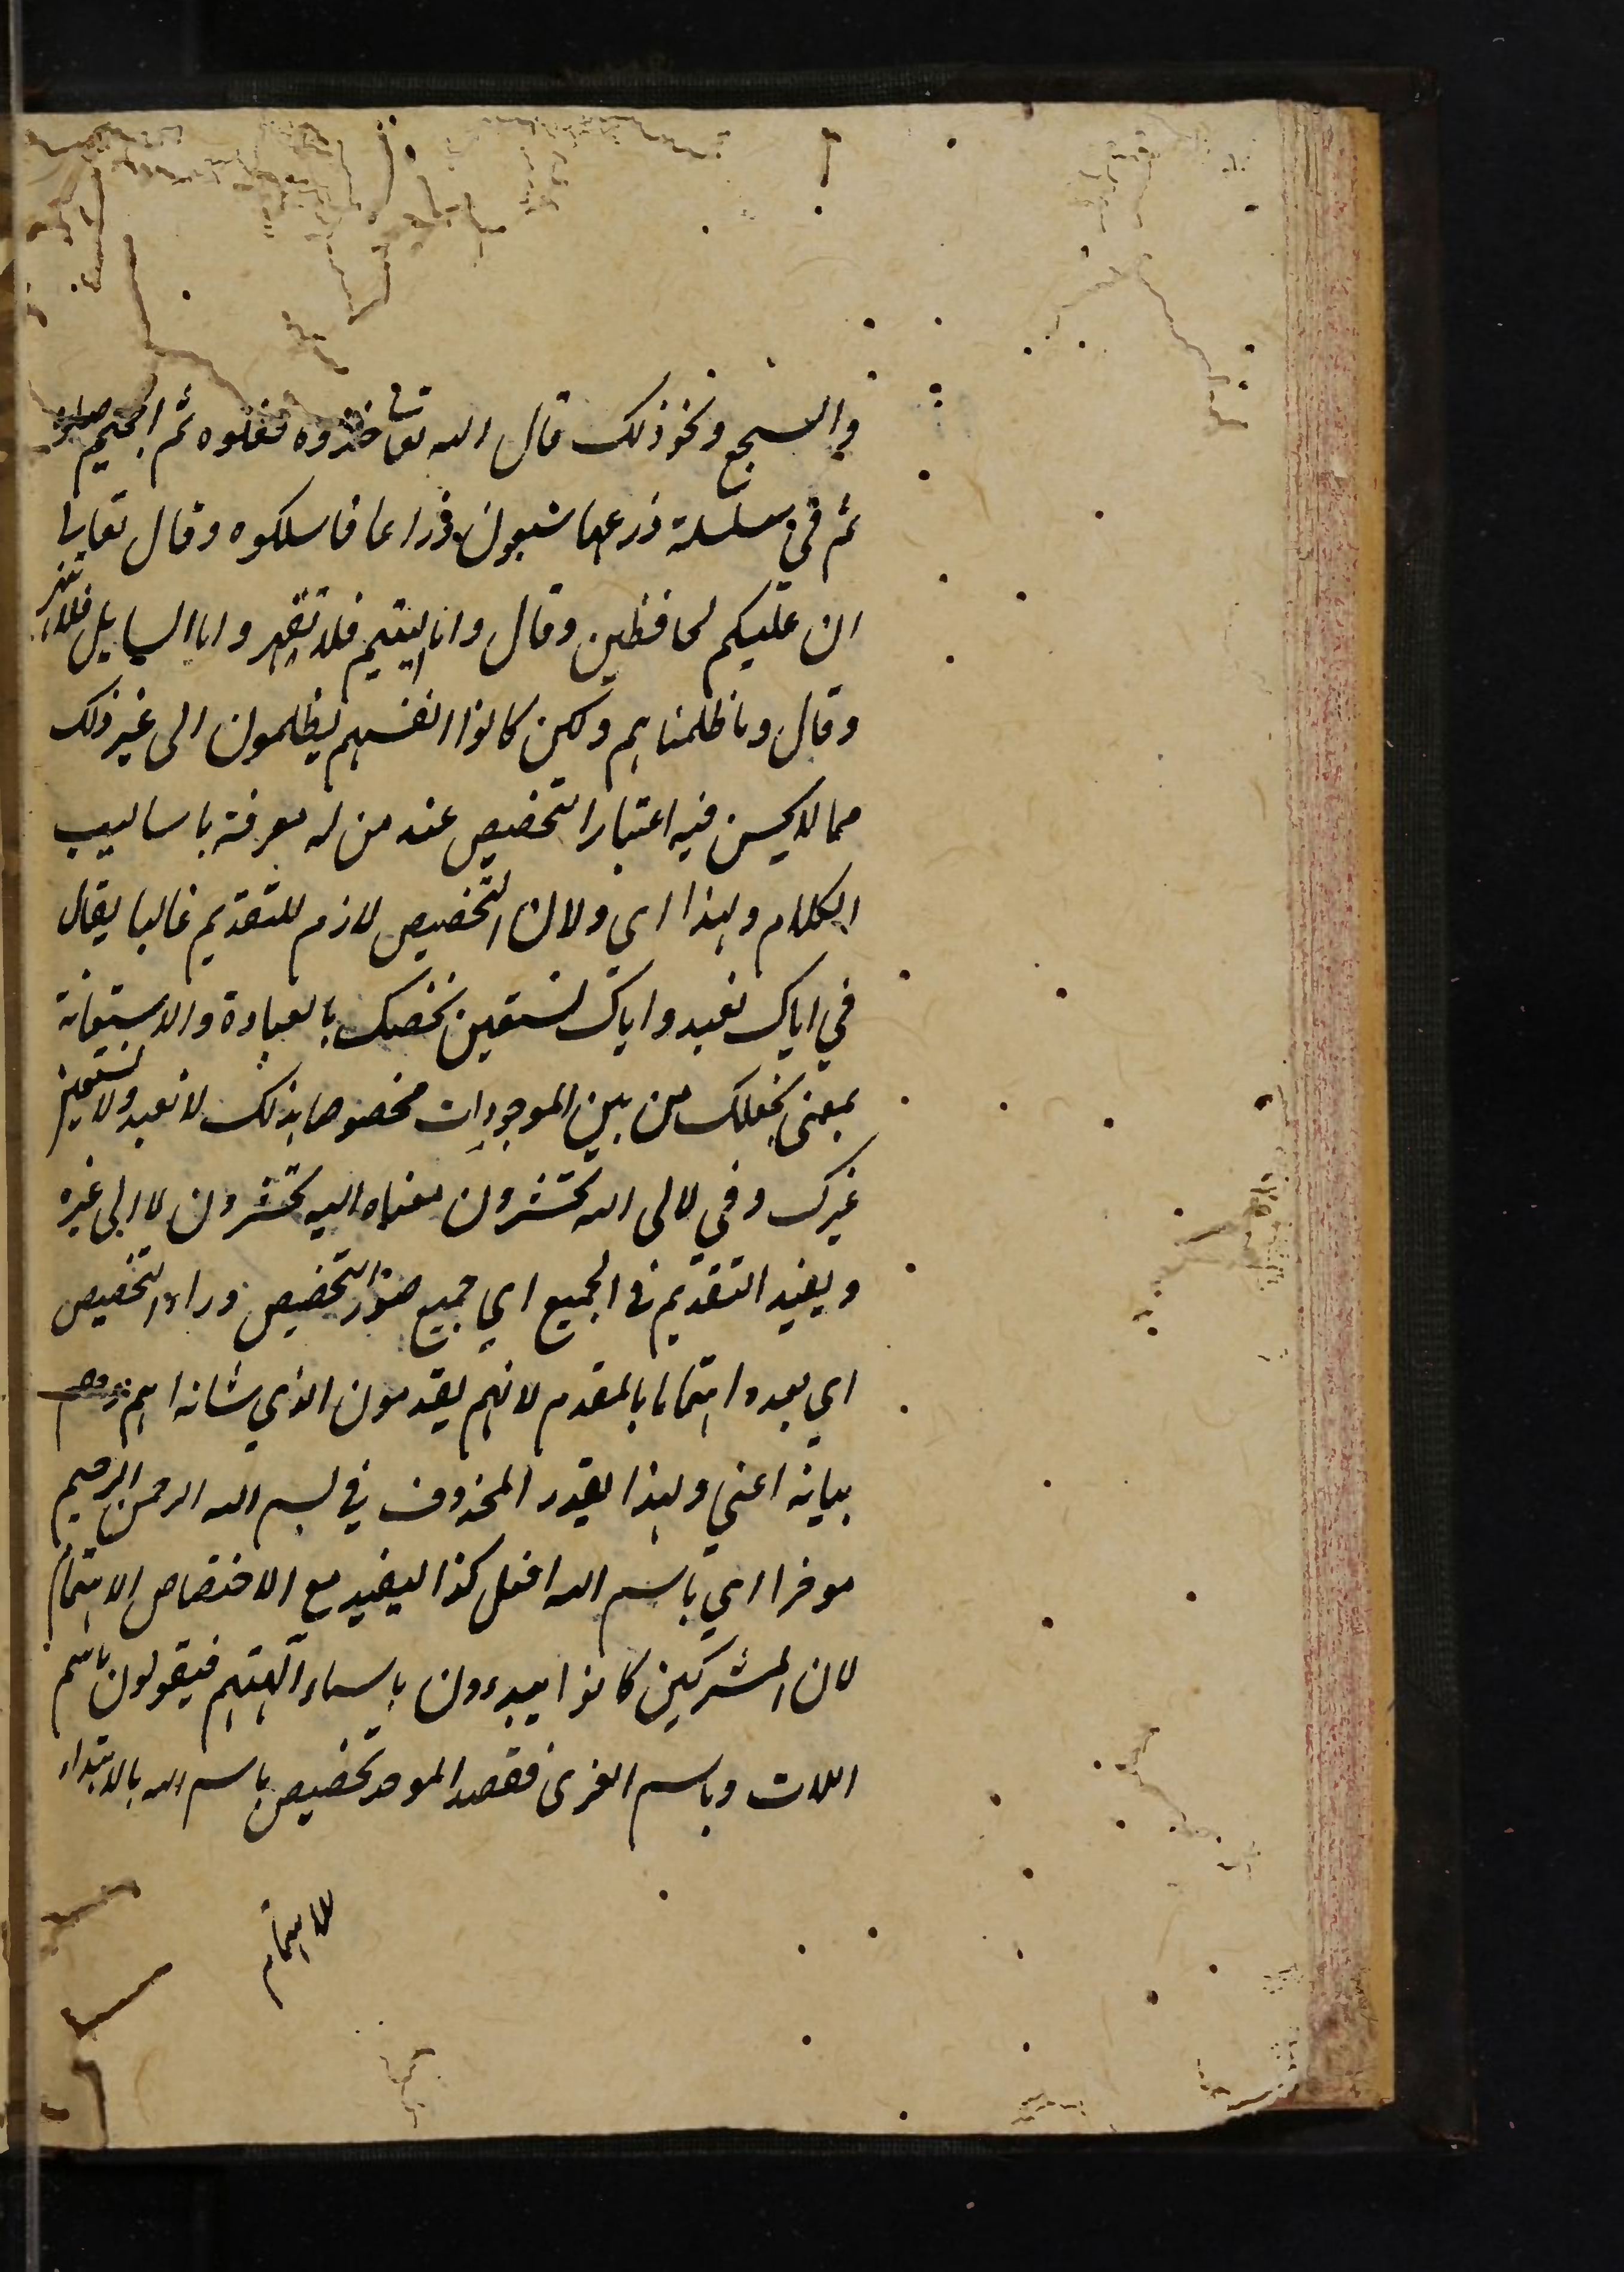 والسجع ونحو ذلك قال الله تعالى خذوه فغلوه ثم الجحيم صلوه
ثم في سلسلة ذرعها سبعون ذراعا فاسلكوه وقال تعالى
ان عليكم لحافظين وقال واما اليتيم فلا تقهر واما السايل فلا تنهر
وقال وما ظلمناهم ولكن كانوا انفسهم يظلمون الى غير ذلك
مما لا يحسن فيه اعتبار التخصيص عند من له معرفة باساليب
الكلام ولهذا اي ولان التخصيص لازم للتقديم غالبا يقال
في اياك نعبد واياك نستعين نخصك بالعبادة والاستعانة
بمعنى نجعلك من بين الموجودات مخصوصا بذلك لا نعبد ولا نستعين
غيرك وفي لالى الله تحشرون معناه اليه تحشرون لا الى غيره
ويفيد التقديم في الجميع اي جميع صور التخصيص وراء التخصيص
اي بعده اهتماما بالمقدم لانهم يقدمون الذي شانه اهم وهم
ببيانه اعني ولهذا يقدر المحذوف في بسم الله الرحمن الرحيم
موخرا اي باسم الله افعل كذا ليفيد مع الاختصاص الاهتمام
لان المشركين كانوا يبدءون باسماء آلهتهم فيقولون باسم
اللات وباسم العزى فقصد الموحد تخصيص باسم الله بالابتداء
للاهتمام